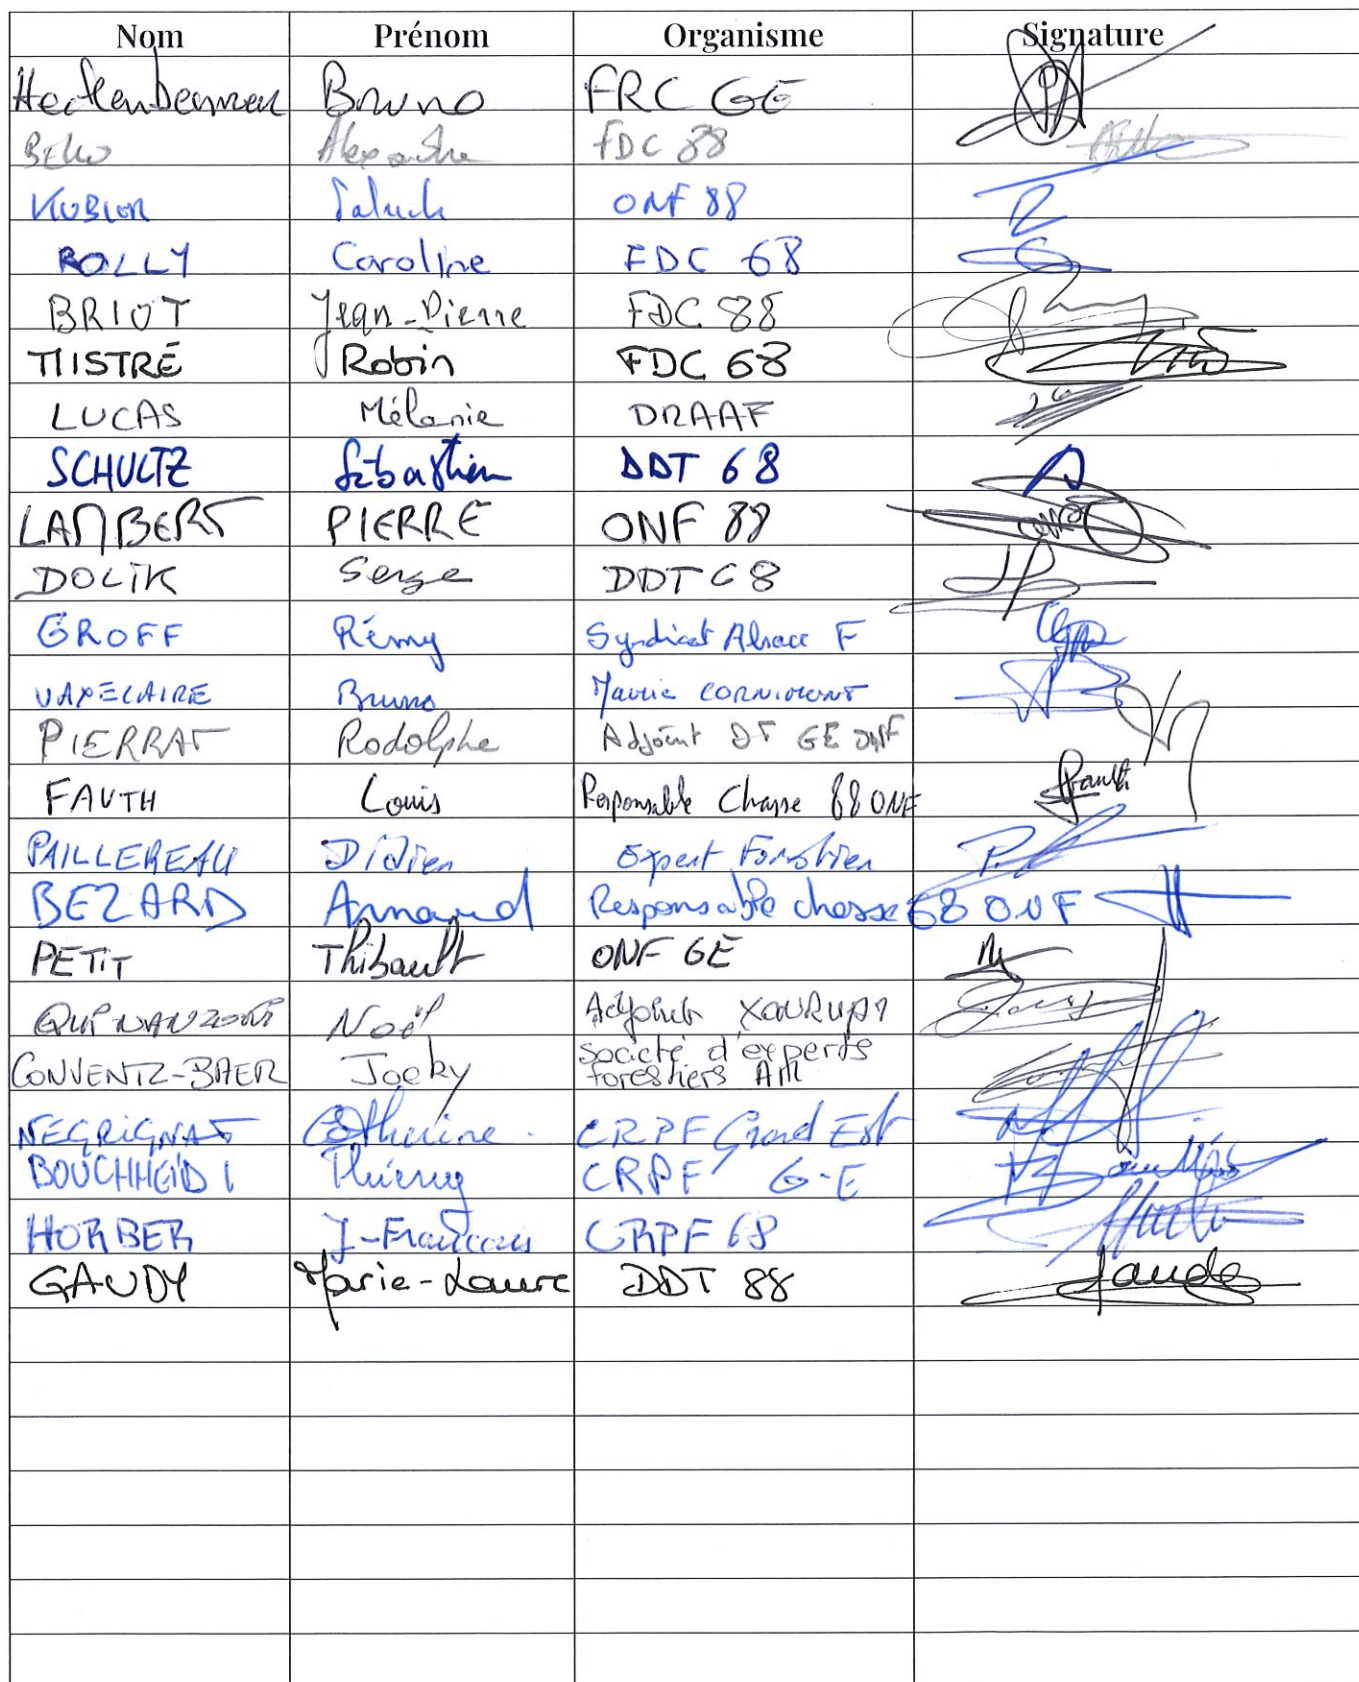 Nom Prénom Organisme Signature
Bruno FRC GE
Alexandre FDC 88
ONF 88
ROLLY Caroline FDC 68
BRIOT Jean-Pierre FDC 88
MISTRÉ Robin FDC 68
LUCAS Mélanie DRAAF
SCHULTZ Sébastien DDT 68
LAMBERT PIERRE ONF 88
DOLIK Serge DDT 68
GROFF Rémy Syndicat Alsace F
VAXELAIRE Bruno Mairie CORNIMONT
PIERRAT Rodolphe Adjoint DT GE ONF
FAUTH Louis Responsable Chasse 88 ONF Fauth
PAILLEREAU Didier Expert Forestier
BEZARD Arnaud Responsable chasse 68 ONF
PETIT Thibault ONF GE
Noël Adjoint
CONVENTZ-BAER Jacky société d'experts
forestiers
NEGRIGNAT Catherine. CRPF Grand Est
Thierry CRPF G-E
HORBER J-Francois CRPF 68
GAUDY Marie-Laure DDT 88 Gaudy